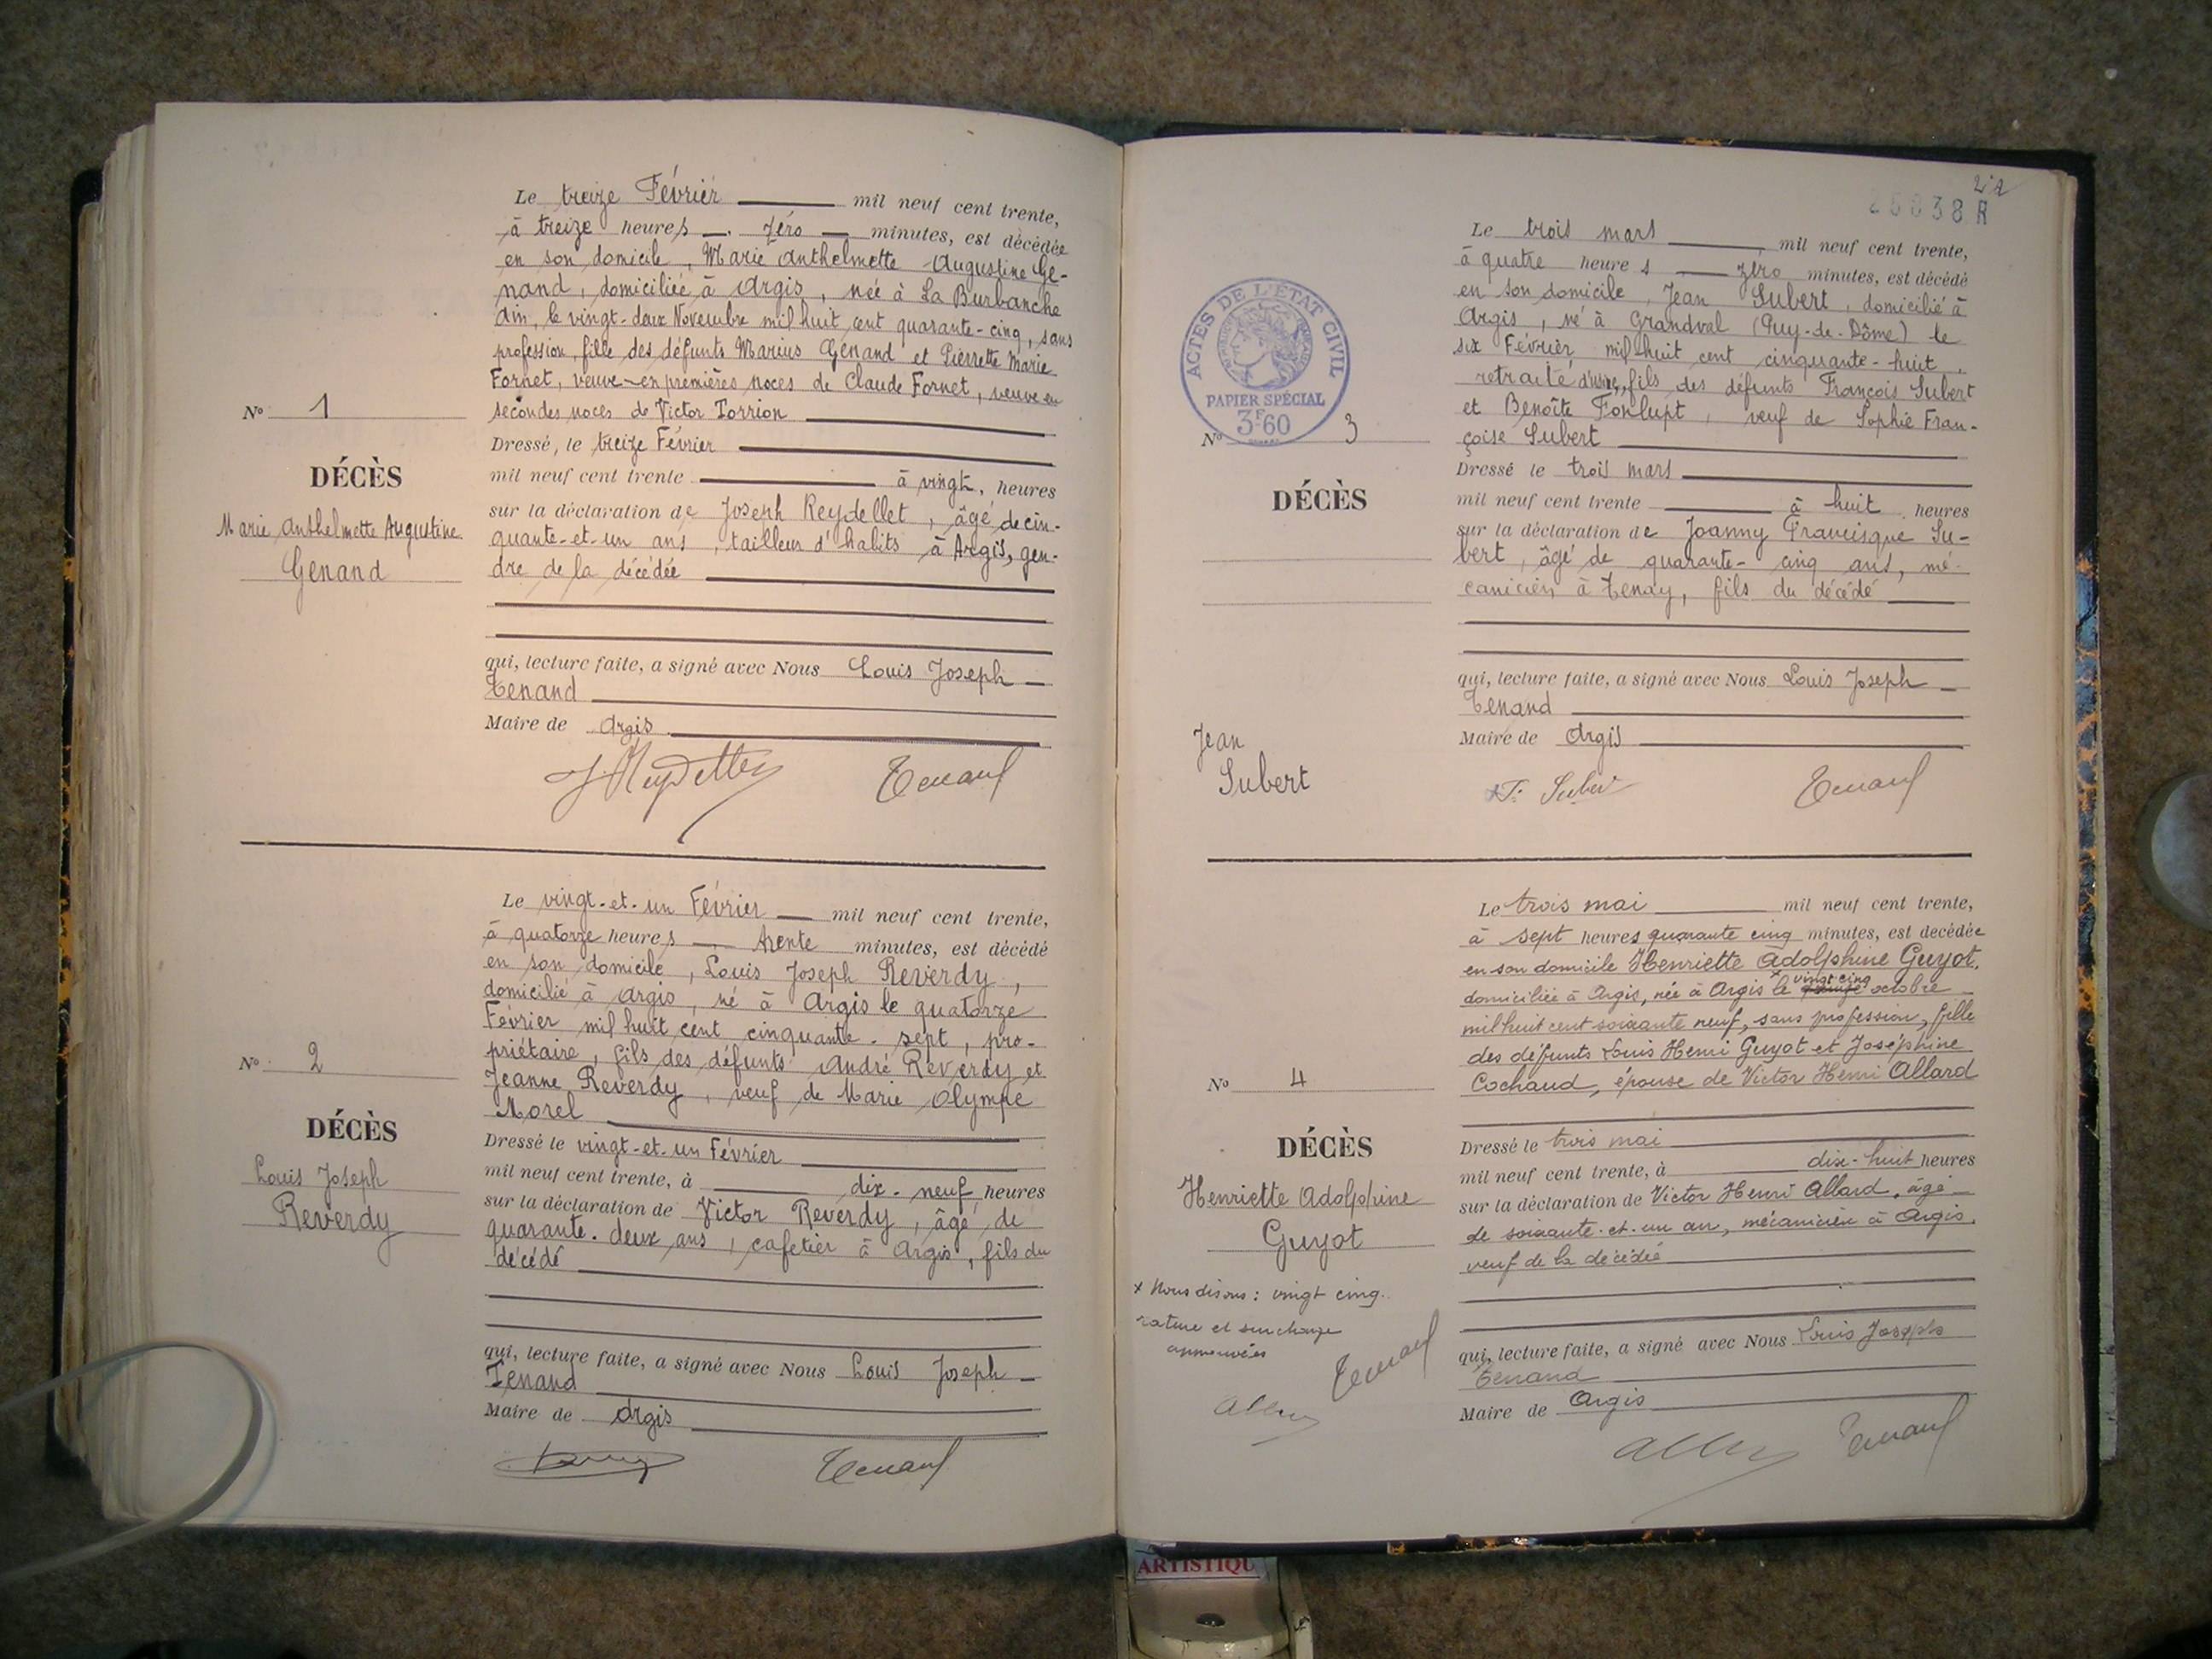 Le treize Février mil neuf cent trente,
à treize heures zéro minutes, est décédée
en son domicile, Marie Anthelmette Augustine Ge-
nand, domiciliée à Argis, née à La Burbanche
Ain, le vingt-deux Novembre mil huit cent quarante-cinq, sans
profession, fille des défunts Marius Genand et Pierrette Marie
Fornet, veuve en premières noces de Claude Fornet, veuve en
secondes noces de Victor Torrion
Nº 1
Dressé, le treize Février
DÉCÈS
mil neuf cent trente à vingt, heures
Marie Anthelmette Augustine
Genand
sur la déclaration de Joseph Reydellet, âgé de cin-
quante-et-un ans, tailleur d'habits à Argis, gen-
dre de la décédée
qui, lecture faite, a signé avec Nous Louis Joseph
Tenand
Maire de Argis
J Reydellet Tenand
Le vingt-et-un Février mil neuf cent trente,
à quatorze heures trente minutes, est décédé
en son domicile, Louis Joseph Reverdy,
domicilié à Argis, né à Argis le quatorze
Février mil huit cent cinquante-sept, pro-
priétaire, fils des défunts André Reverdy et
Jeanne Reverdy, veuf de Marie Olympe
Morel
Nº 2
DÉCÈS
Louis Joseph
Reverdy
Dressé le vingt-et-un Février
mil neuf cent trente, à dix-neuf heures
sur la déclaration de Victor Reverdy, âgé de
quarante-deux ans, cafetier à Argis, fils du
décédé
qui, lecture faite, a signé avec Nous Louis Joseph
Tenand
Maire de Argis
Tenand
26038 R
ACTES DE L'ÉTAT CIVIL
PAPIER SPÉCIAL
3F60
Le trois mars mil neuf cent trente,
à quatre heures zéro minutes, est décédé
en son domicile, Jean Subert, domicilié à
Argis, né à Grandval (Puy-de-Dôme) le
six Février mil huit cent cinquante-huit,
retraité d'usine, fils des défunts François Subert
et Benoîte Fonlupt, veuf de Sophie Fran-
çoise Subert
Nº 3
DÉCÈS
Jean
Subert
Dressé le trois mars
mil neuf cent trente à huit heures
sur la déclaration de Joanny Francisque Su-
bert, âgé de quarante-cinq ans, mé-
canicien à Tenay, fils du décédé
qui, lecture faite, a signé avec Nous Louis Joseph
Tenand
Maire de Argis
Subert Tenand
Le trois mai mil neuf cent trente,
à sept heures quarante cinq minutes, est décédée
en son domicile Henriette Adolphine Guyot,
domiciliée à Argis, née à Argis le vingt cinq octobre
mil huit cent soixante neuf, sans profession, fille
des défunts Louis Henri Guyot et Joséphine
Cochaud, épouse de Victor Henri Allard
Nº 4
DÉCÈS
Henriette Adolphine
Guyot
x Nous disons : vingt cinq.
rature et surcharge
approuvées
Allard Tenand
Dressé le trois mai
mil neuf cent trente, à dix-huit heures
sur la déclaration de Victor Henri Allard, âgé
de soixante-et-un an, mécanicien à Argis,
veuf de la décédée
qui, lecture faite, a signé avec Nous Louis Joseph
Tenand
Maire de Argis
Allard Tenand
ARTISTIQU